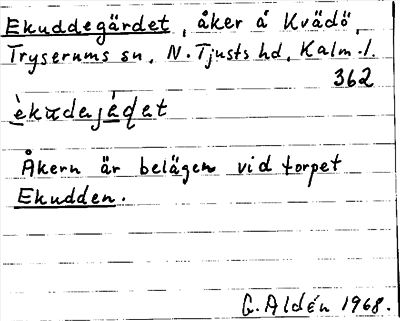 Ekuddegärdet, åker å Kvädö,
Tryserums sn, N. Tjusts hd, Kalm. l.
362
èkudejéḍet
Åkern är belägen vid torpet
Ekudden.
G. Aldén 1968.